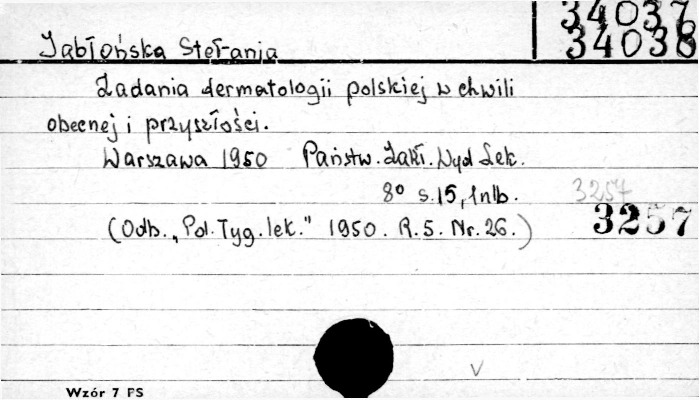 34037
34038
Jabłońska Stefania
Zadania dermatologii polskiej w chwili
obecnej i przyszłości.
Warszawa 1950 Państw. Zakł. Wyd Lek.
8° s.15, 1nlb.
3257
3257
(Odb. „Pol. Tyg. lek." 1950. R.5. Nr. 26.)
V
Wzór 7 PS